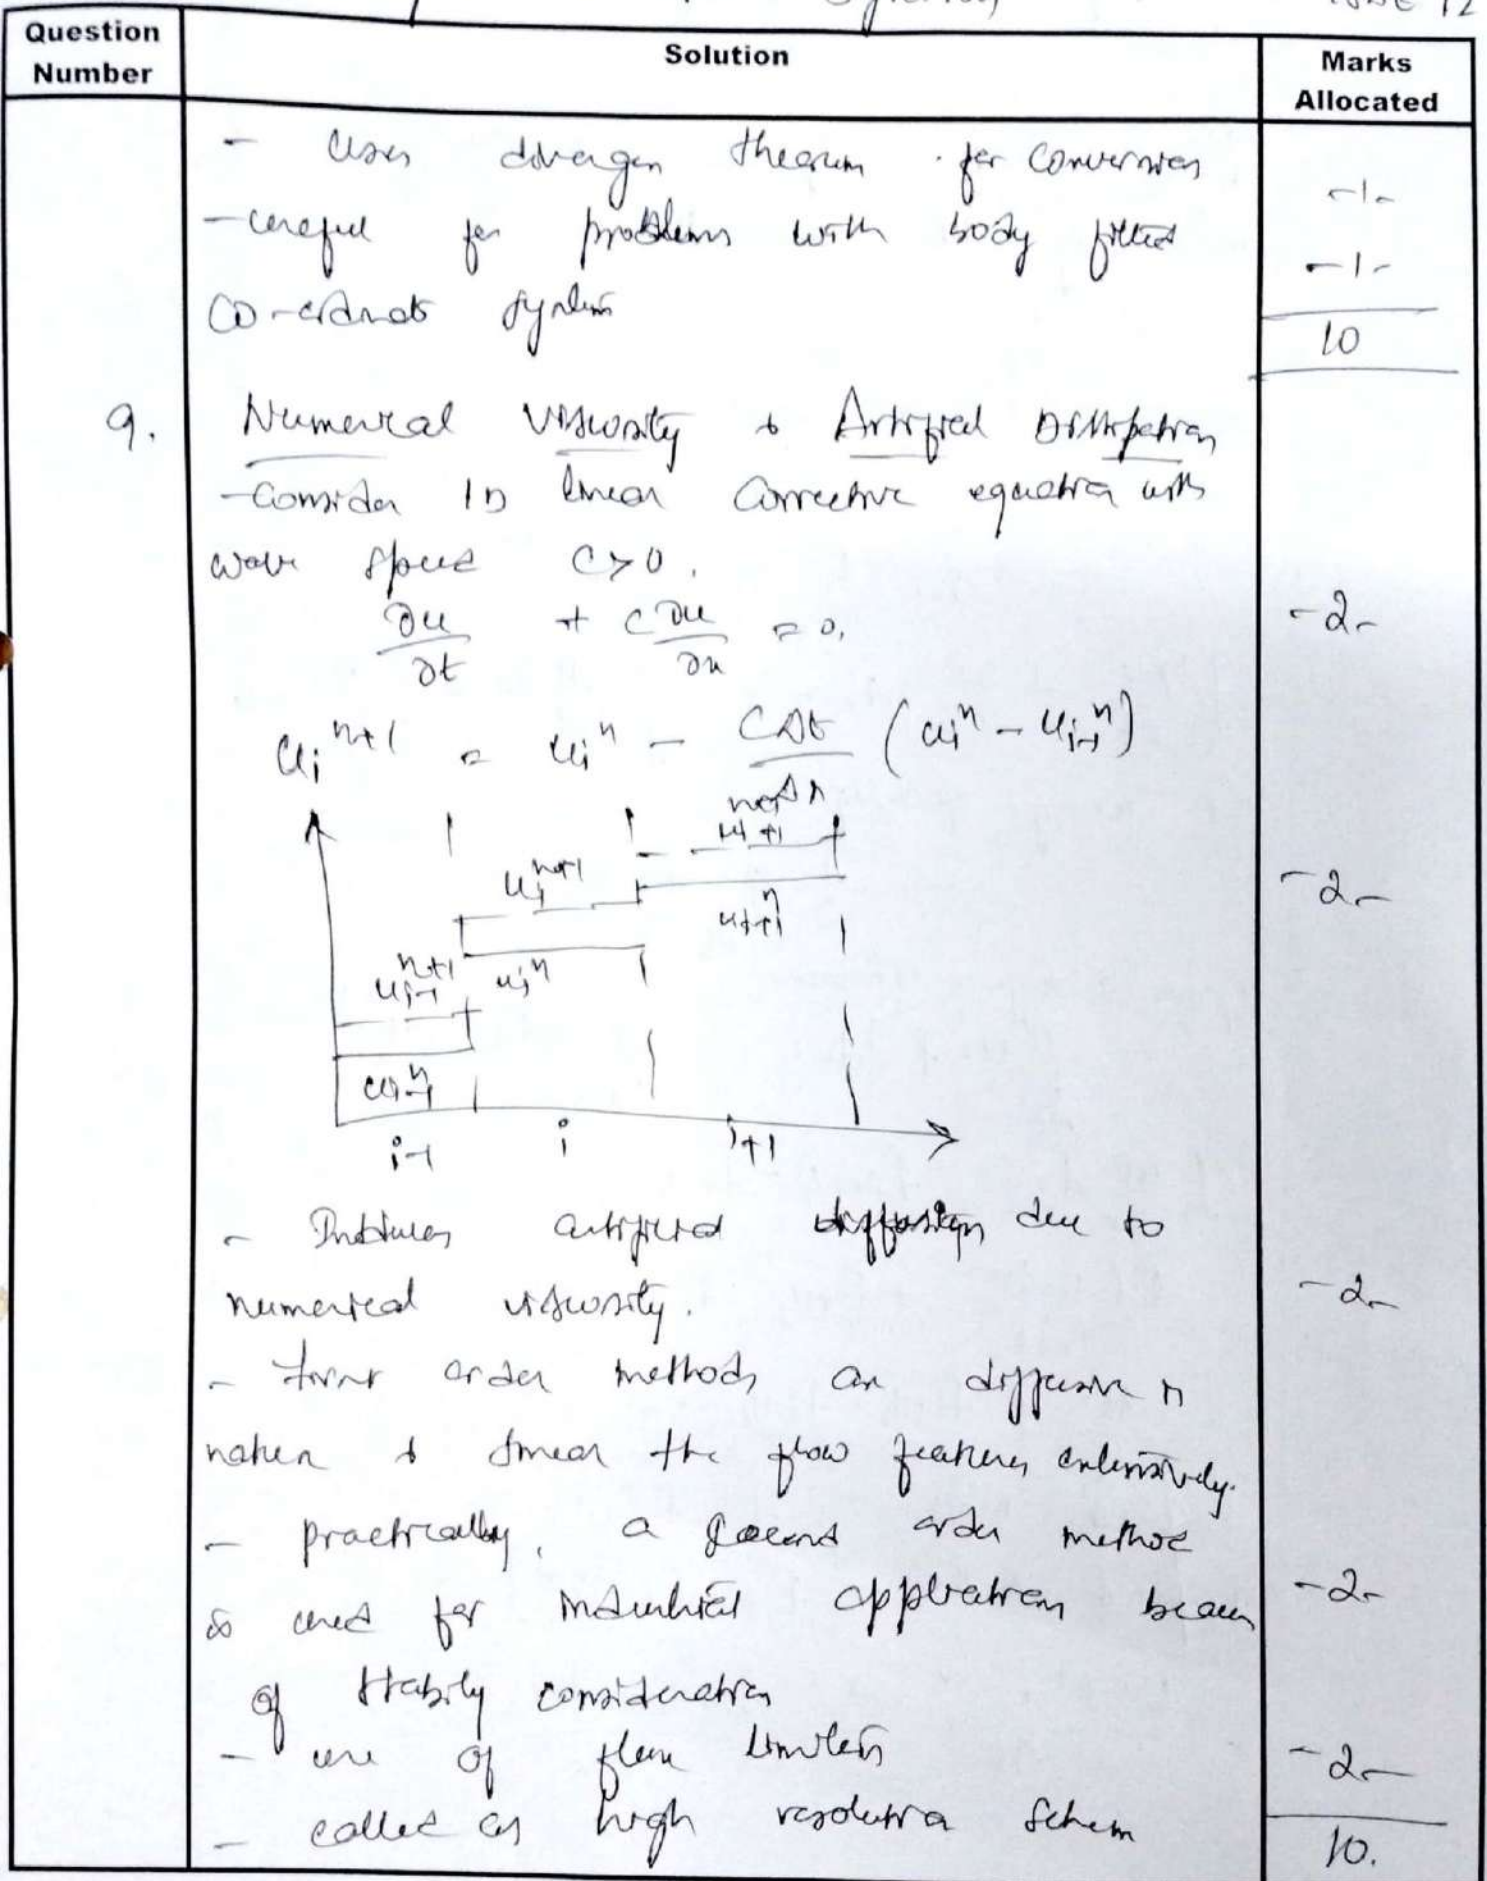 Question Number
Solution
Marks Allocated
- Uses divergen theorum for conversion -1-
- careful for problems with body fitted -1-
co-ordinate system
10
9. Numerical viscosity & Artificial Dissipation
- Consider 1D linear convective equation with
wave speed C>0.
∂u/∂t + C ∂u/∂x = 0. -2-
u_i^{n+1} = u_i^n - CΔt/Δx (u_i^n - u_{i-1}^n)
u_{i+1}^{n+1}
u_i^{n+1} -2-
u_{i+1}^n
u_{i-1}^{n+1} u_i^n
u_{i-1}^n
i-1 i i+1
- Introduces artificial diffusion due to
numerical viscosity. -2-
- First order methods are diffusive in
nature & smear the flow features extensively.
- practically, a second order method
is used for industrial application because -2-
of stability consideration
- use of flux limiters -2-
- called as high resolution schem
10.